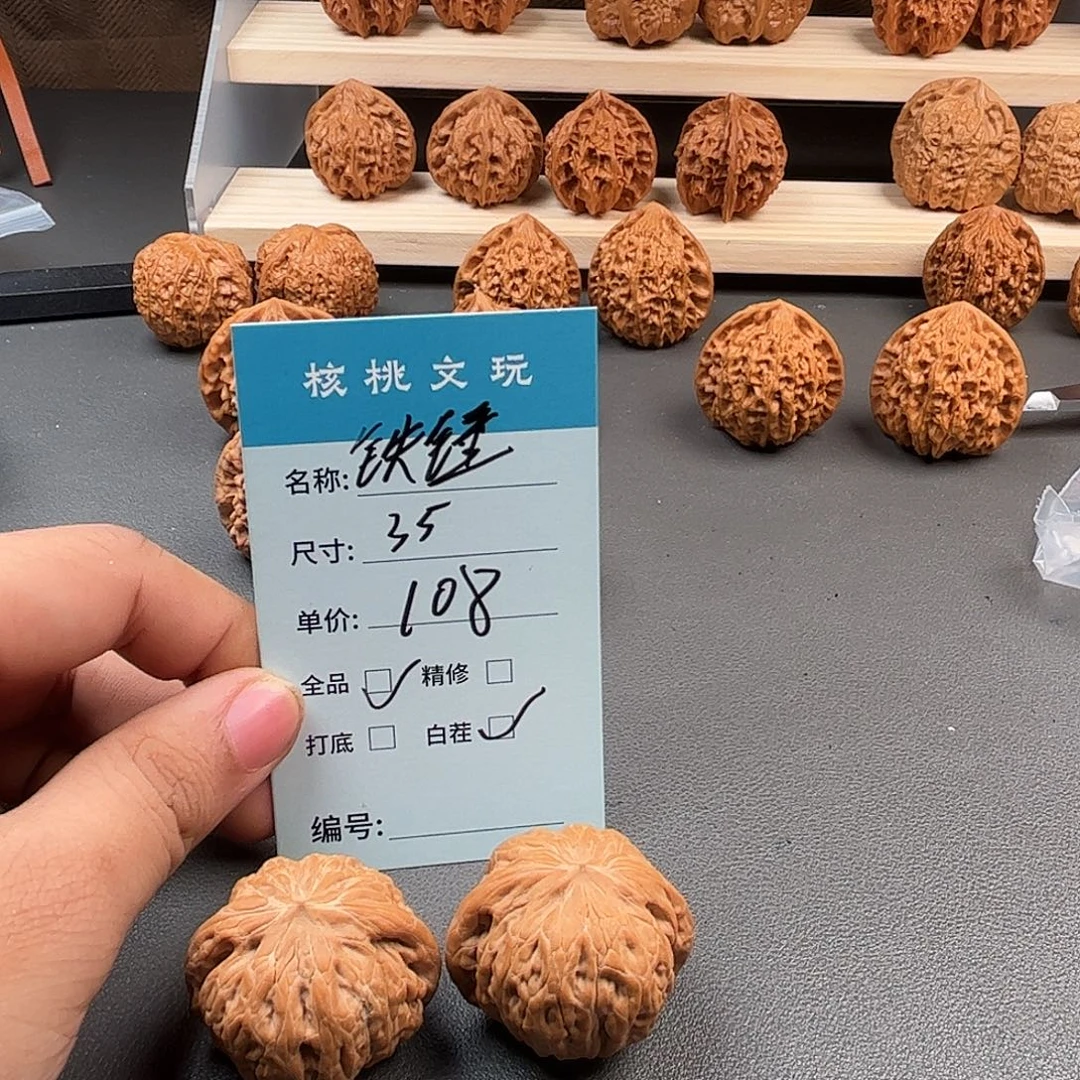 核桃文玩
名称: 铁锤
尺寸: 35
单价: 108
全品 精修
打底 白茬
编号: